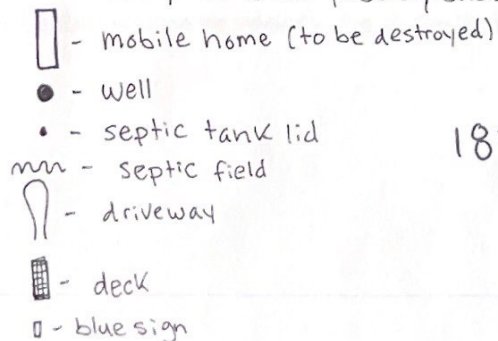 - mobile home (to be destroyed)
- well
- septic tank lid
18
- septic field
- driveway
- deck
- blue sign